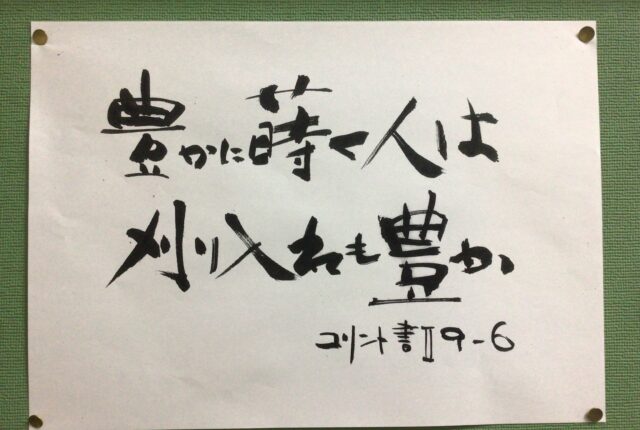 豊かに蒔く人は
刈り入れも豊か
コリント書Ⅱ9-6